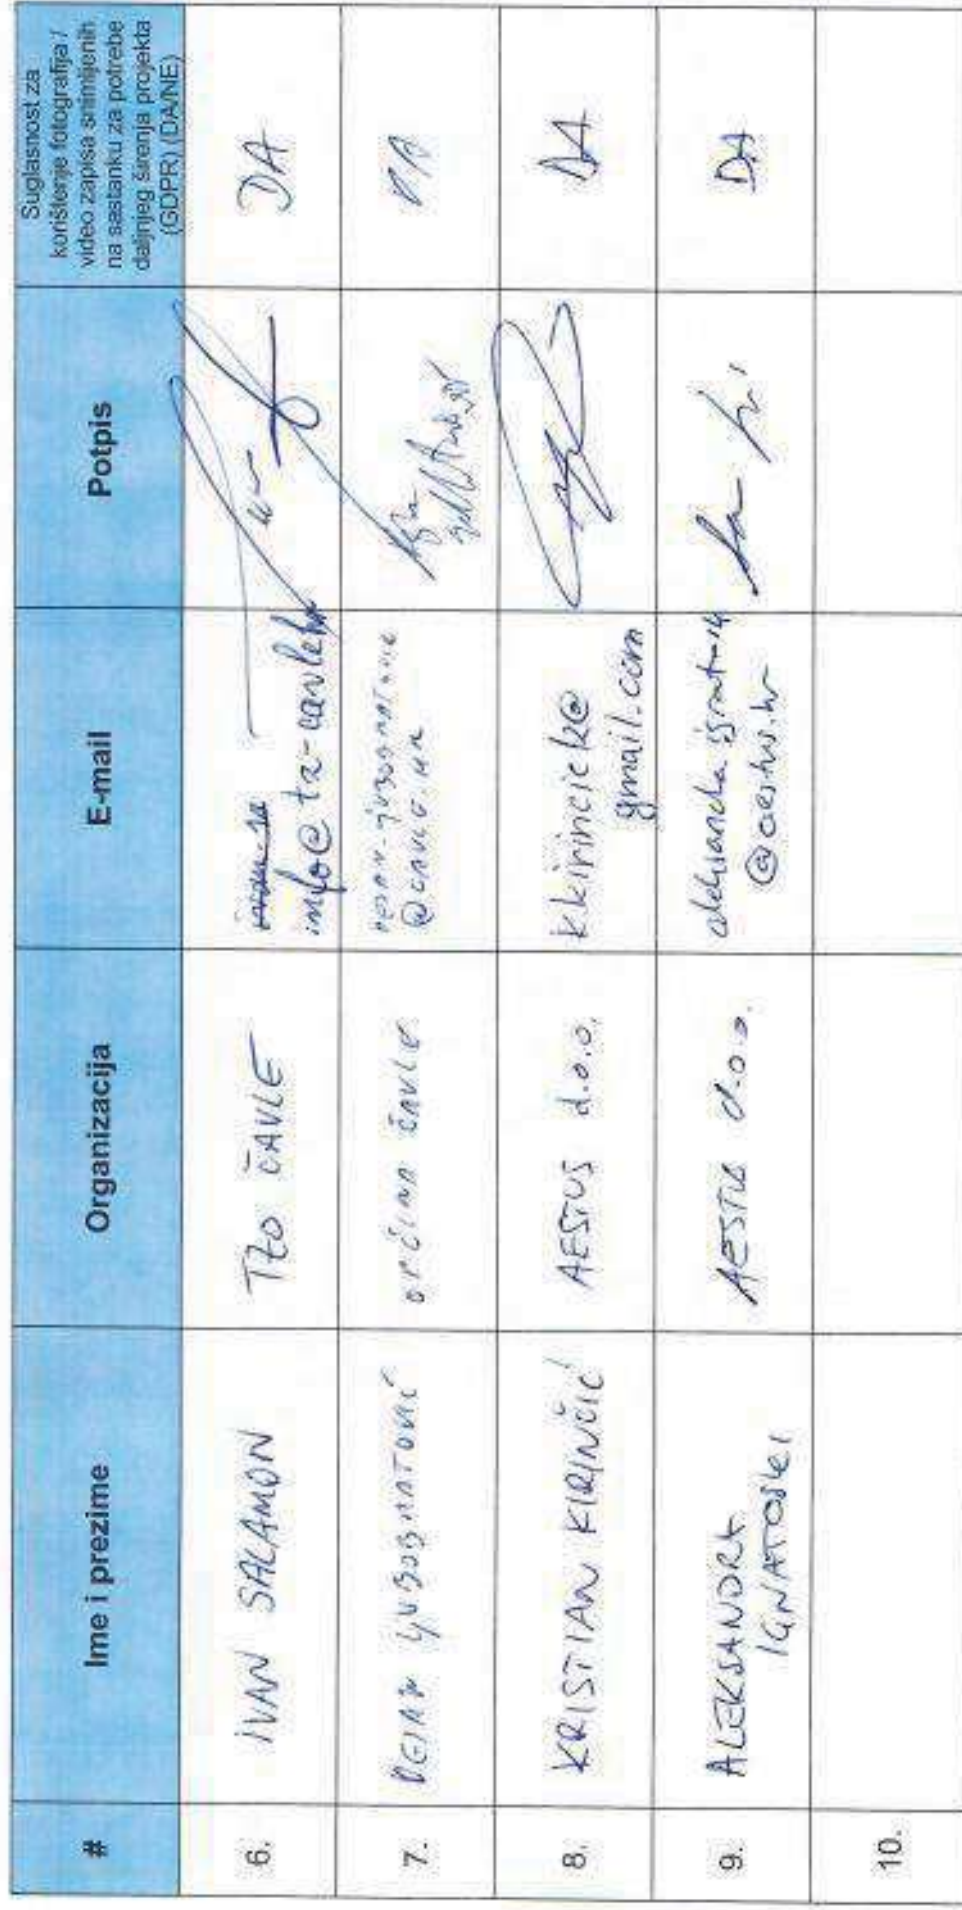 #
Ime i prezime
Organizacija
E-mail
Potpis
Suglasnost za
korištenje fotografija /
video zapisa snimljenih
na sastanku za potrebe
daljnjeg širenja projekta
(GDPR) (DA/NE)
6.
IVAN SALAMON
TZO ČAVLE
info@tz-cavle.hr
DA
7.
DEJAN LJUBOBRATOVIĆ
OPĆINA ČAVLE
@CAVLE.HR
DA
8.
KRISTIAN KIRINČIĆ
AESTUS d.o.o.
kkirincick@
gmail.com
DA
9.
ALEKSANDRA
IGNATOSKI
AESTUS d.o.o.
DA
10.